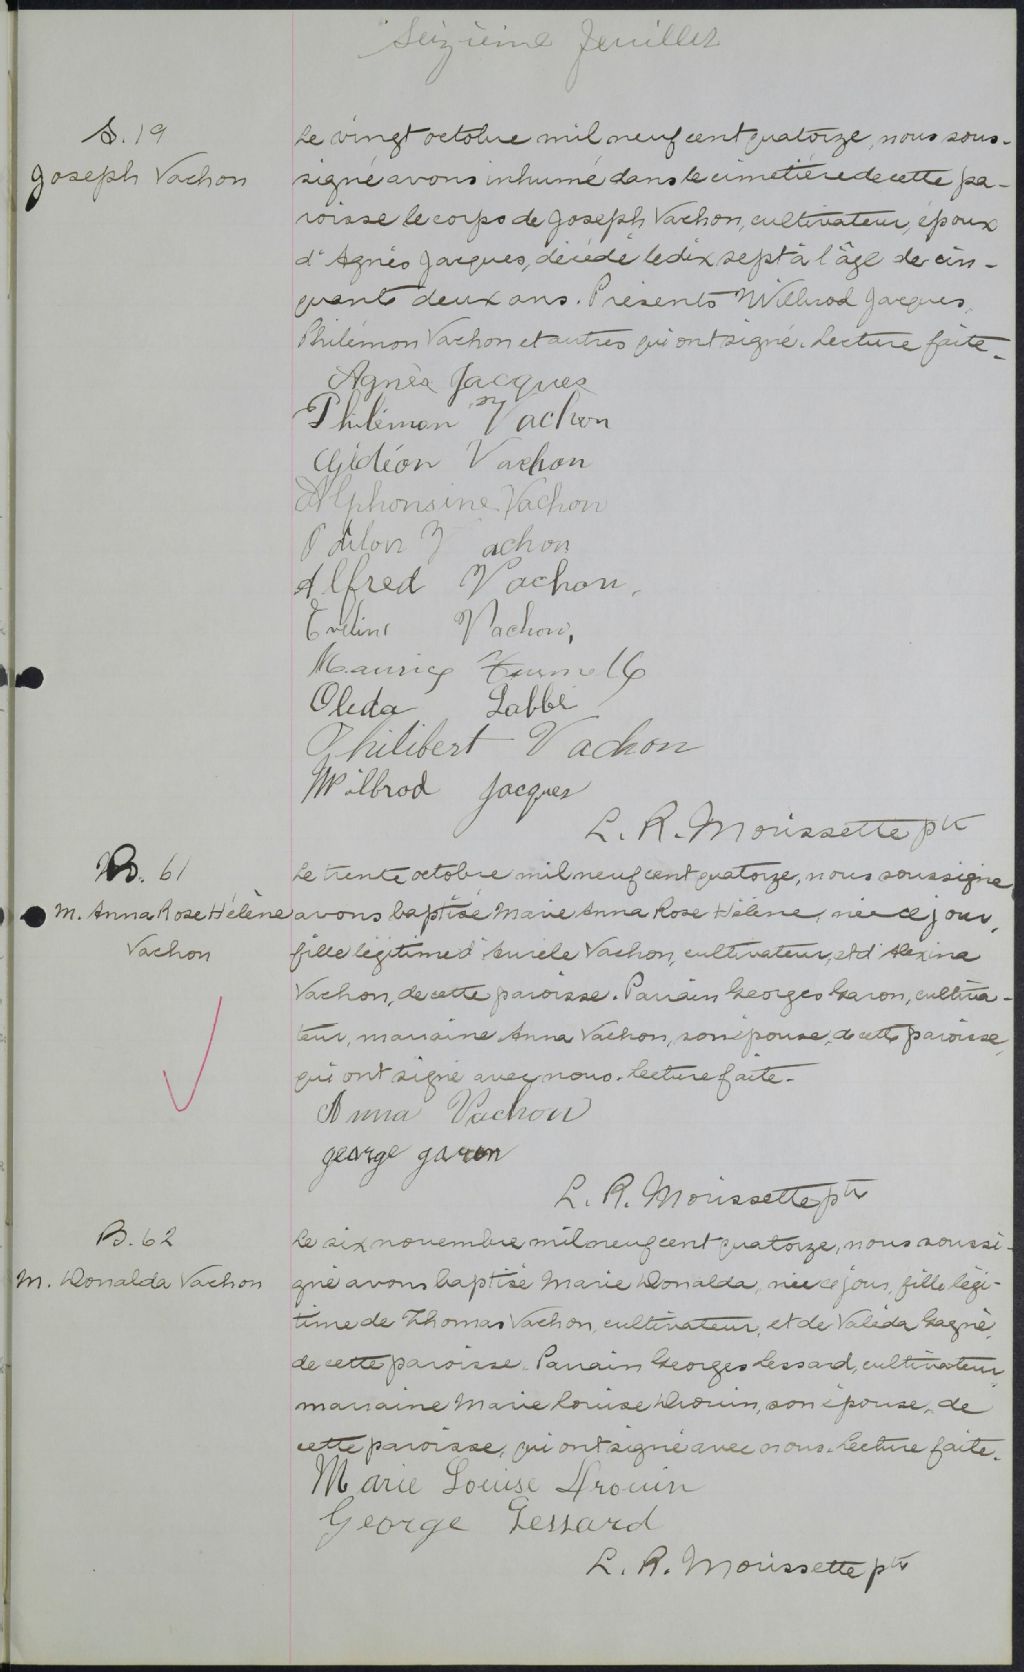 Seizième feuillet
S. 19
Joseph Vachon
Le vingt octobre mil neuf cent quatorze, nous sous-
signé avons inhumé dans le cimetière de cette pa-
roisse le corps de Joseph Vachon, cultivateur, époux
d'Agnès Jacques, décédé le dix sept à l'âge de cin-
quante deux ans. Présents Wilbrod Jacques,
Philémon Vachon et autres qui ont signé. Lecture faite.
Agnès Jacques
Philémon Vachon
Gédéon Vachon
Alphonsine Vachon
Vachon
Alfred Vachon,
Eveline Vachon,
Maurice
Oleda Labbé
Philibert Vachon
Wilbrod Jacques
L. R. Morissette ptr
B. 61
M. Anna Rose Hélène
Vachon
Le trente octobre mil neuf cent quatorze, nous soussigné
avons baptisé Marie Anna Rose Hélène, née ce jour,
fille légitime d'Aurèle Vachon, cultivateur, et d'Alexina
Vachon, de cette paroisse. Parrain Georges Garon, cultiva-
teur, marraine Anna Vachon, son épouse, de cette paroisse,
qui ont signé avec nous. Lecture faite.
Anna Vachon
george garon
L. R. Morissette ptr
B. 62
M. Donalda Vachon
Le six novembre mil neuf cent quatorze, nous soussi-
gné avons baptisé Marie Donalda, née ce jour, fille légi-
time de Thomas Vachon, cultivateur, et de Valéda Gagné,
de cette paroisse. Parrain Georges Lessard, cultivateur,
marraine Marie Louise Drouin, son épouse, de
cette paroisse, qui ont signé avec nous. Lecture faite.
Marie Louise Drouin
George Lessard
L. R. Morissette ptr